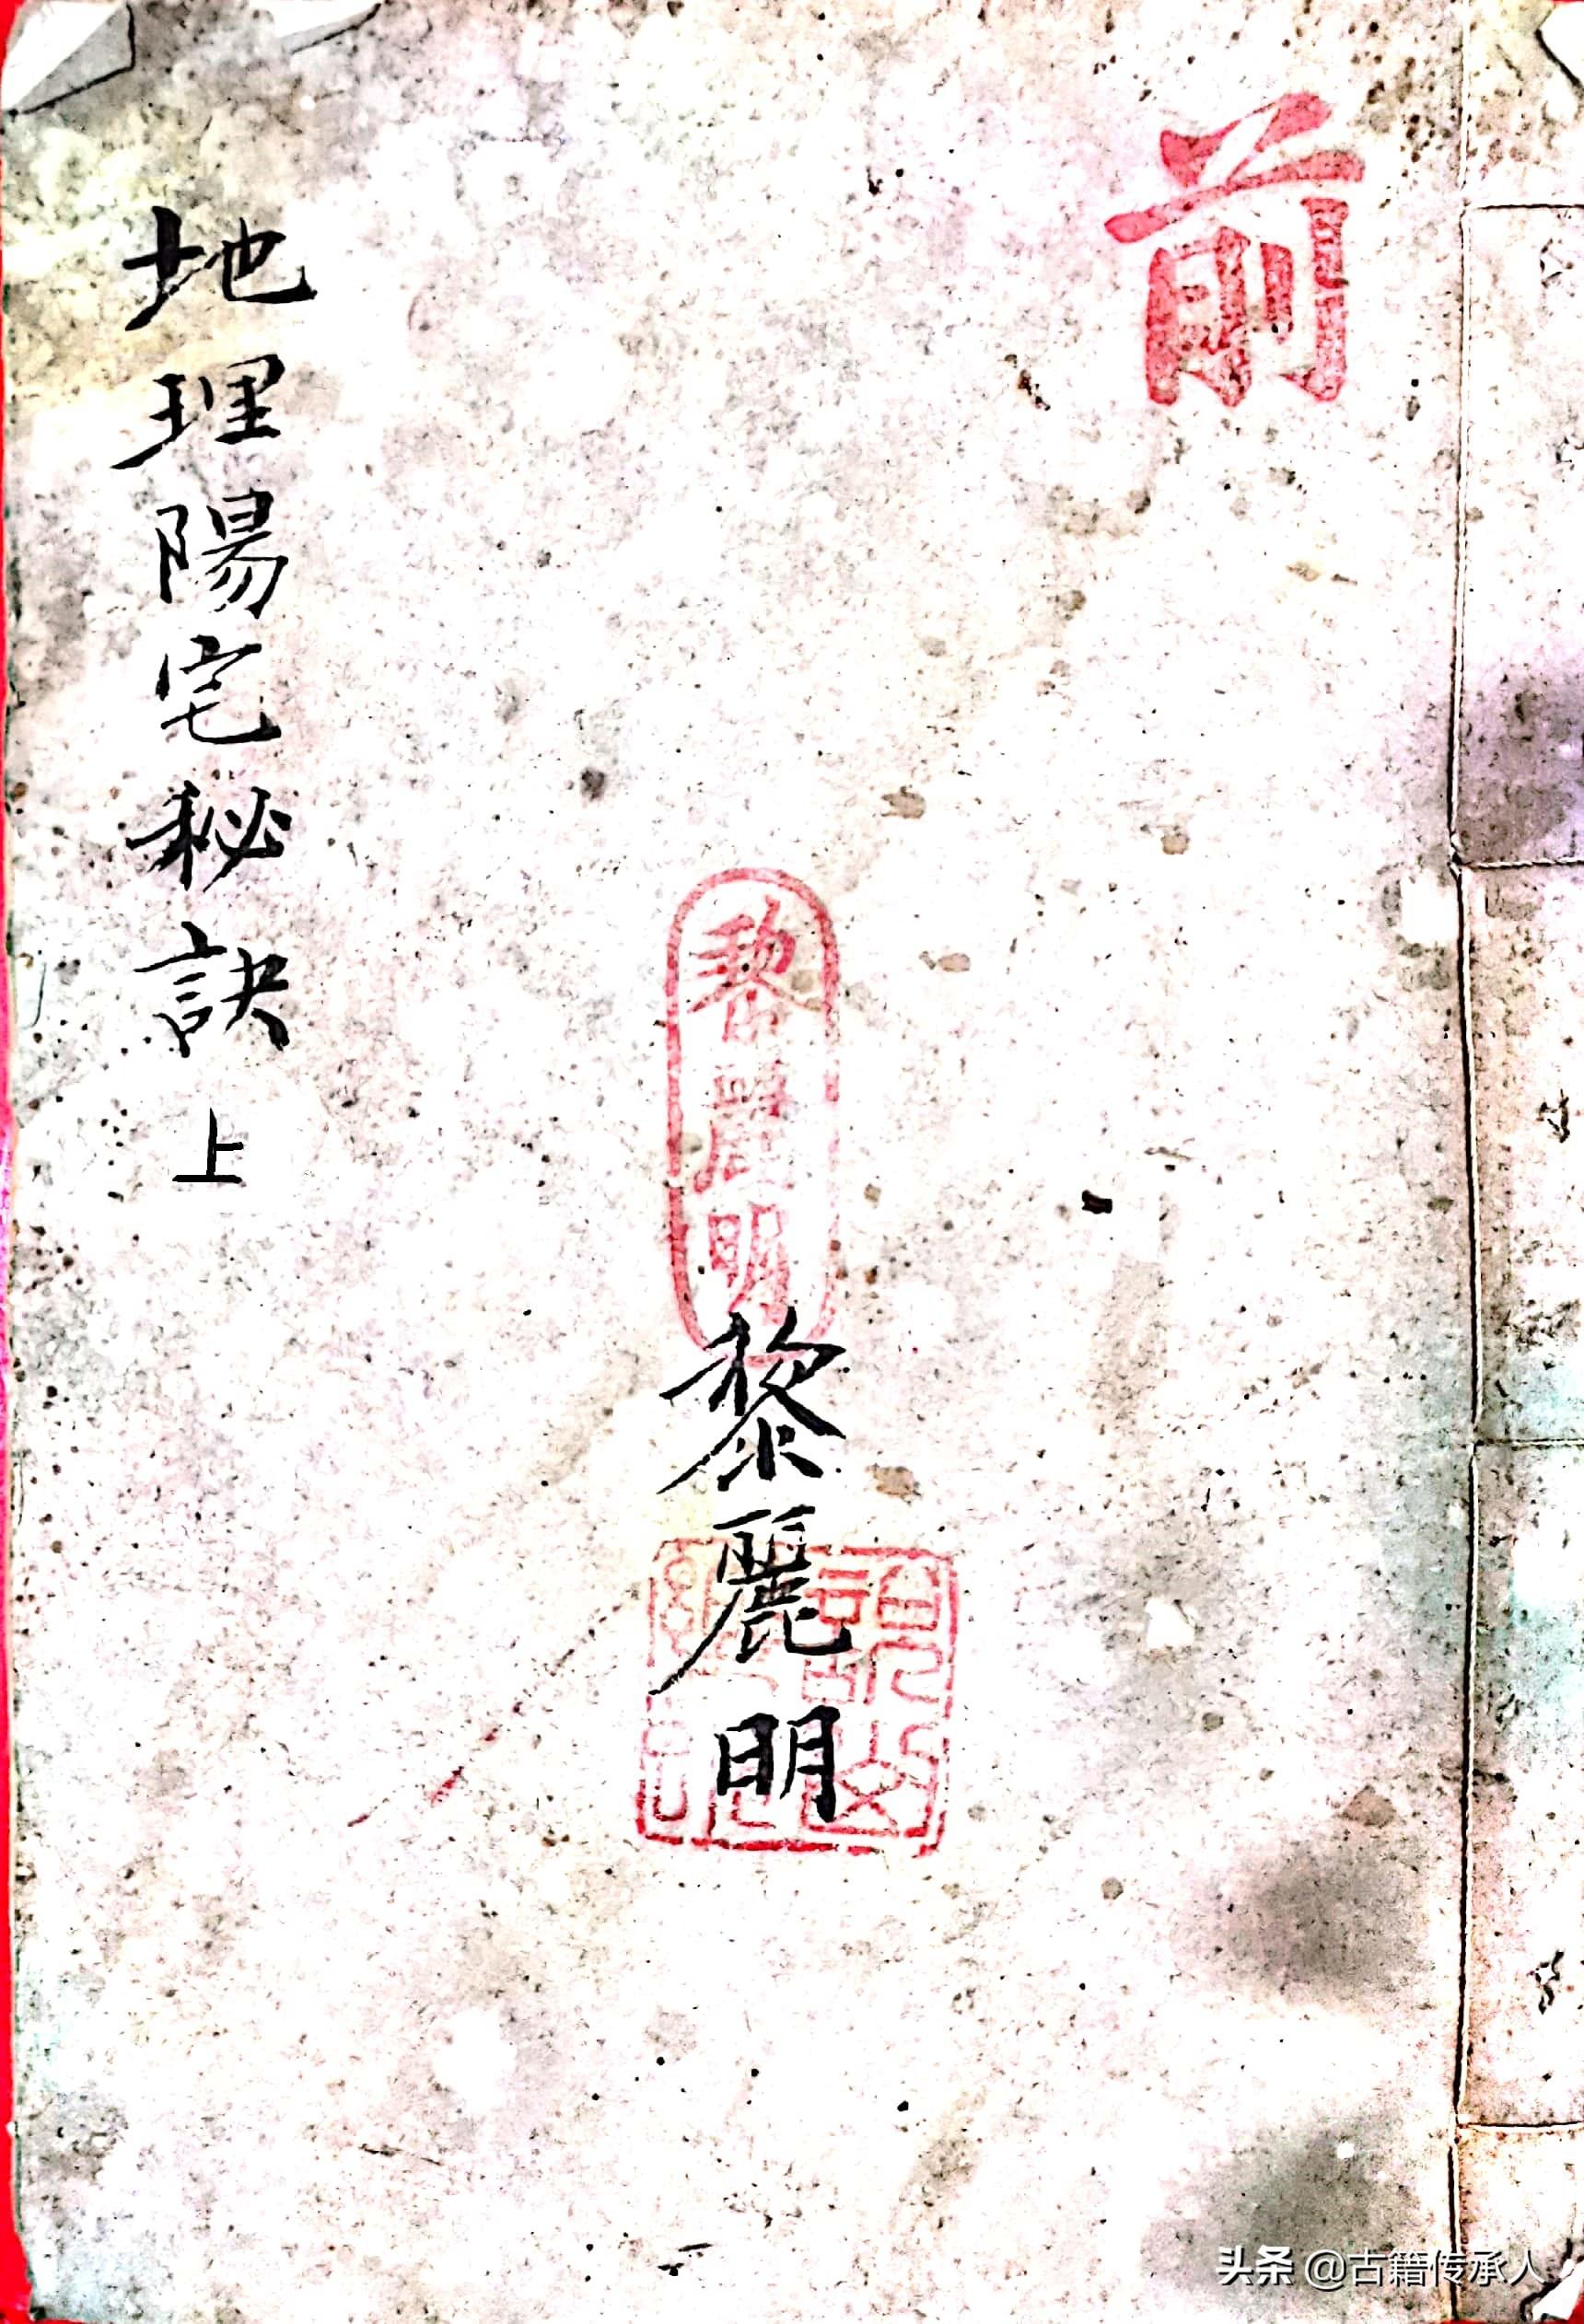 前
黎麗明
黎麗明
地理陽宅秘訣 上
头条 @古籍传承人